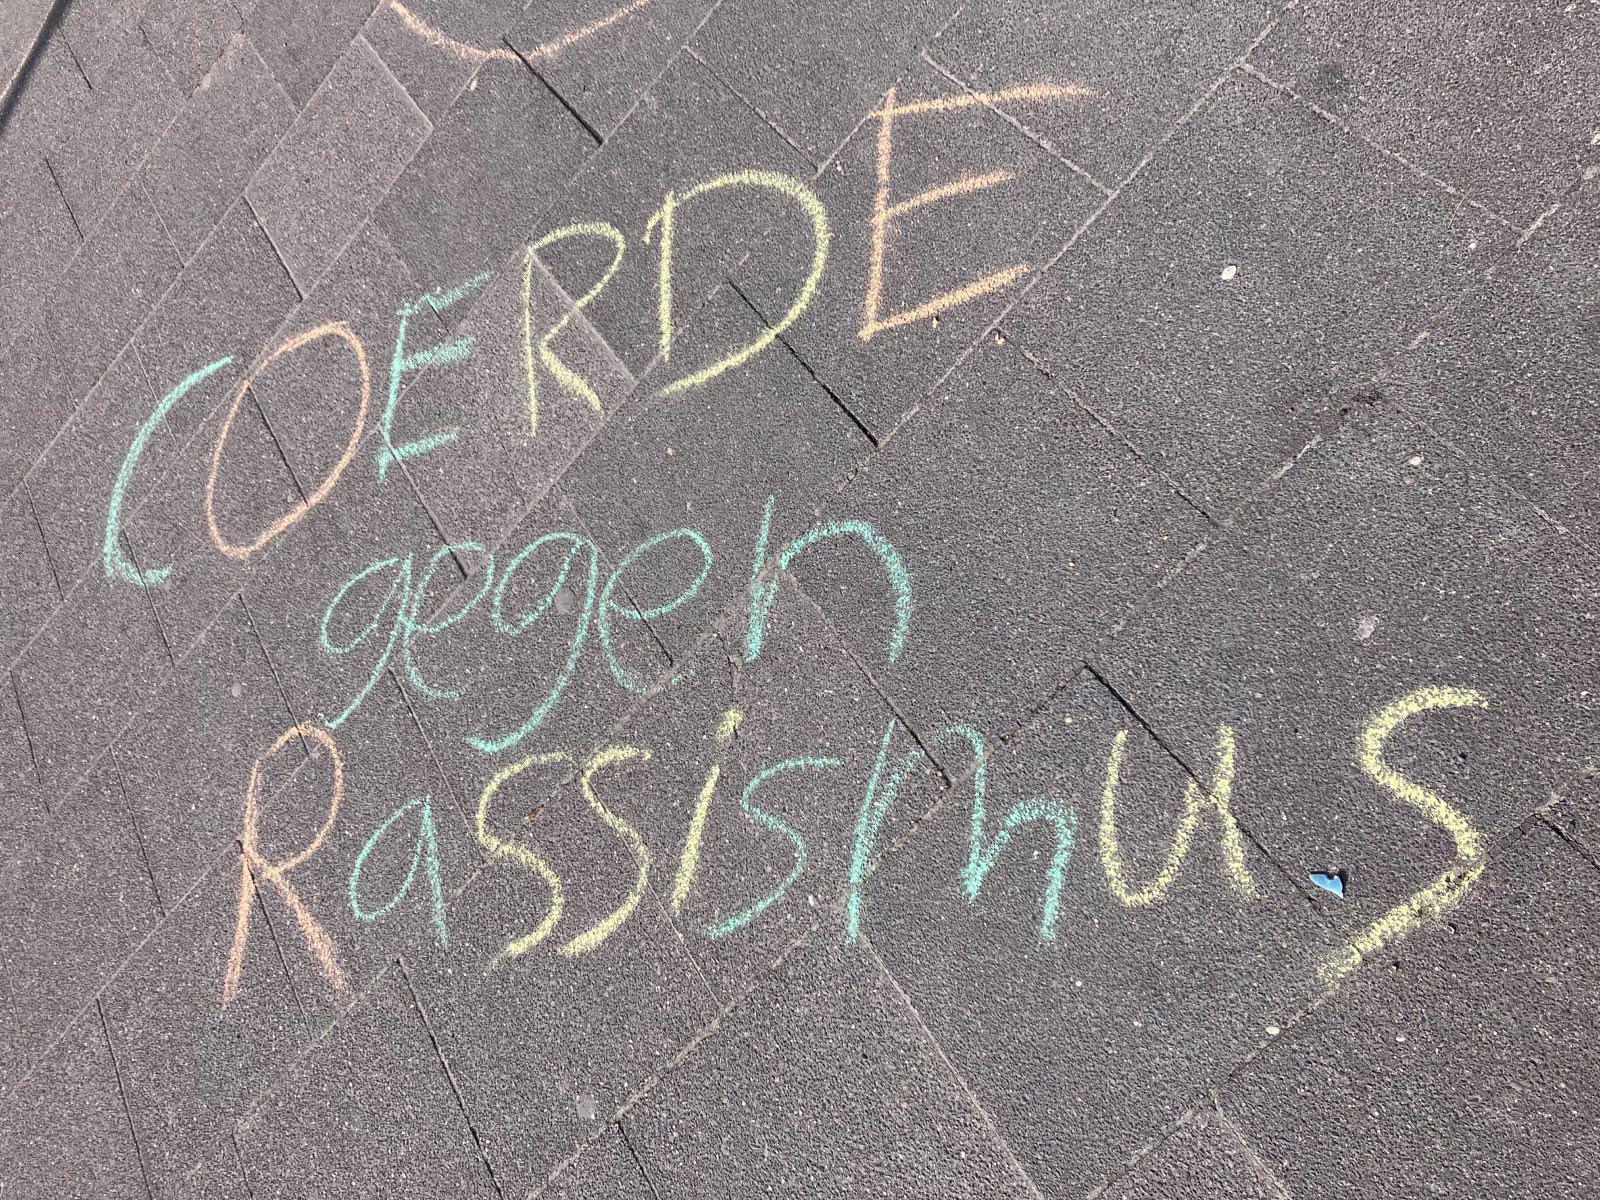 COERDE
gegen
Rassismus